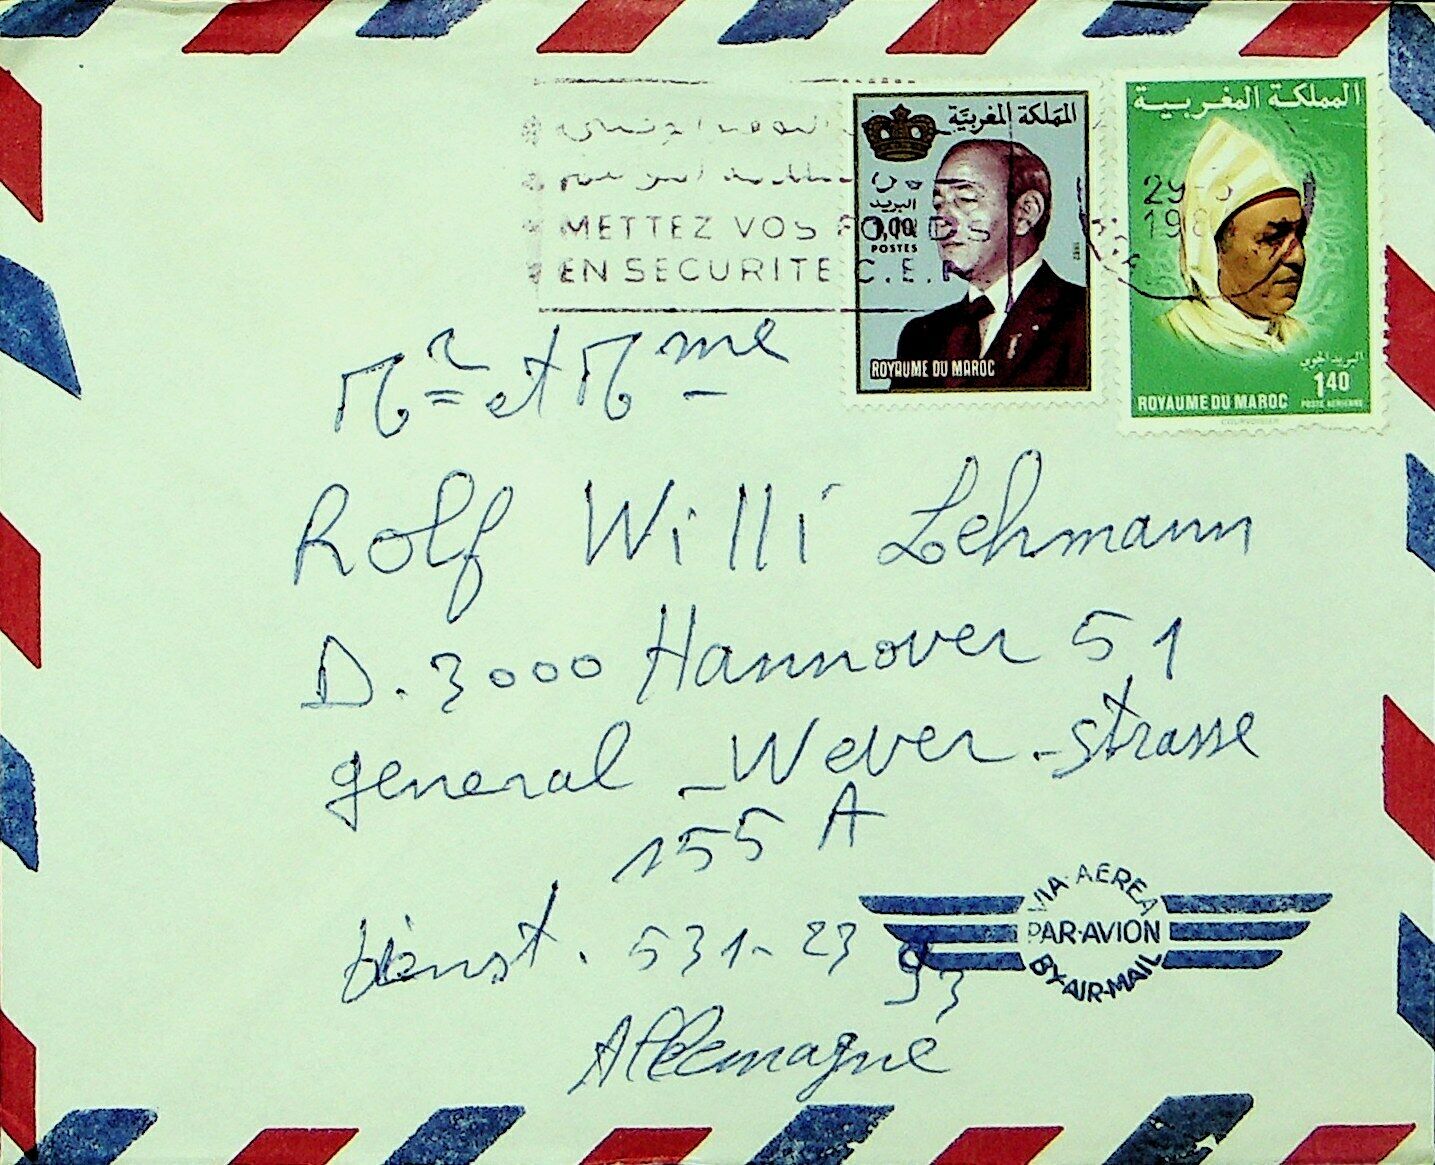 METTEZ VOS FONDS
EN SECURITE C.E.N.
المملكة المغربية
البريد
POSTES
1982
ROYAUME DU MAROC
المملكة المغربية
البريد الجوي
1.40
ROYAUME DU MAROC POSTE AERIENNE
COURVOISIER
29-
198
Mr et Mme
Rolf Willi Lehmann
D. 3000 Hannover 51
general - Wever - strasse
155 A
dienst. 531-23 93
Allemagne
VIA AEREA
PAR AVION
BY AIR MAIL